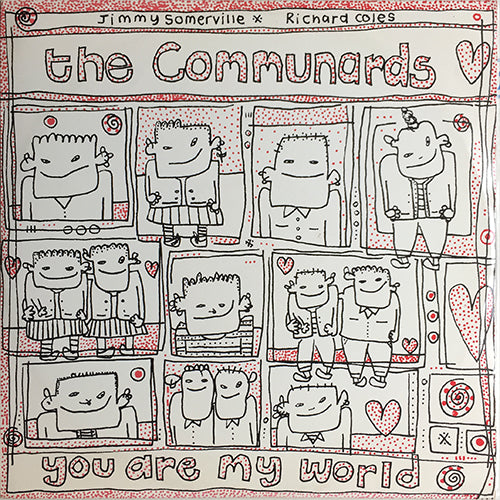 Jimmy Somerville * Richard Coles
the Communards
you are my world